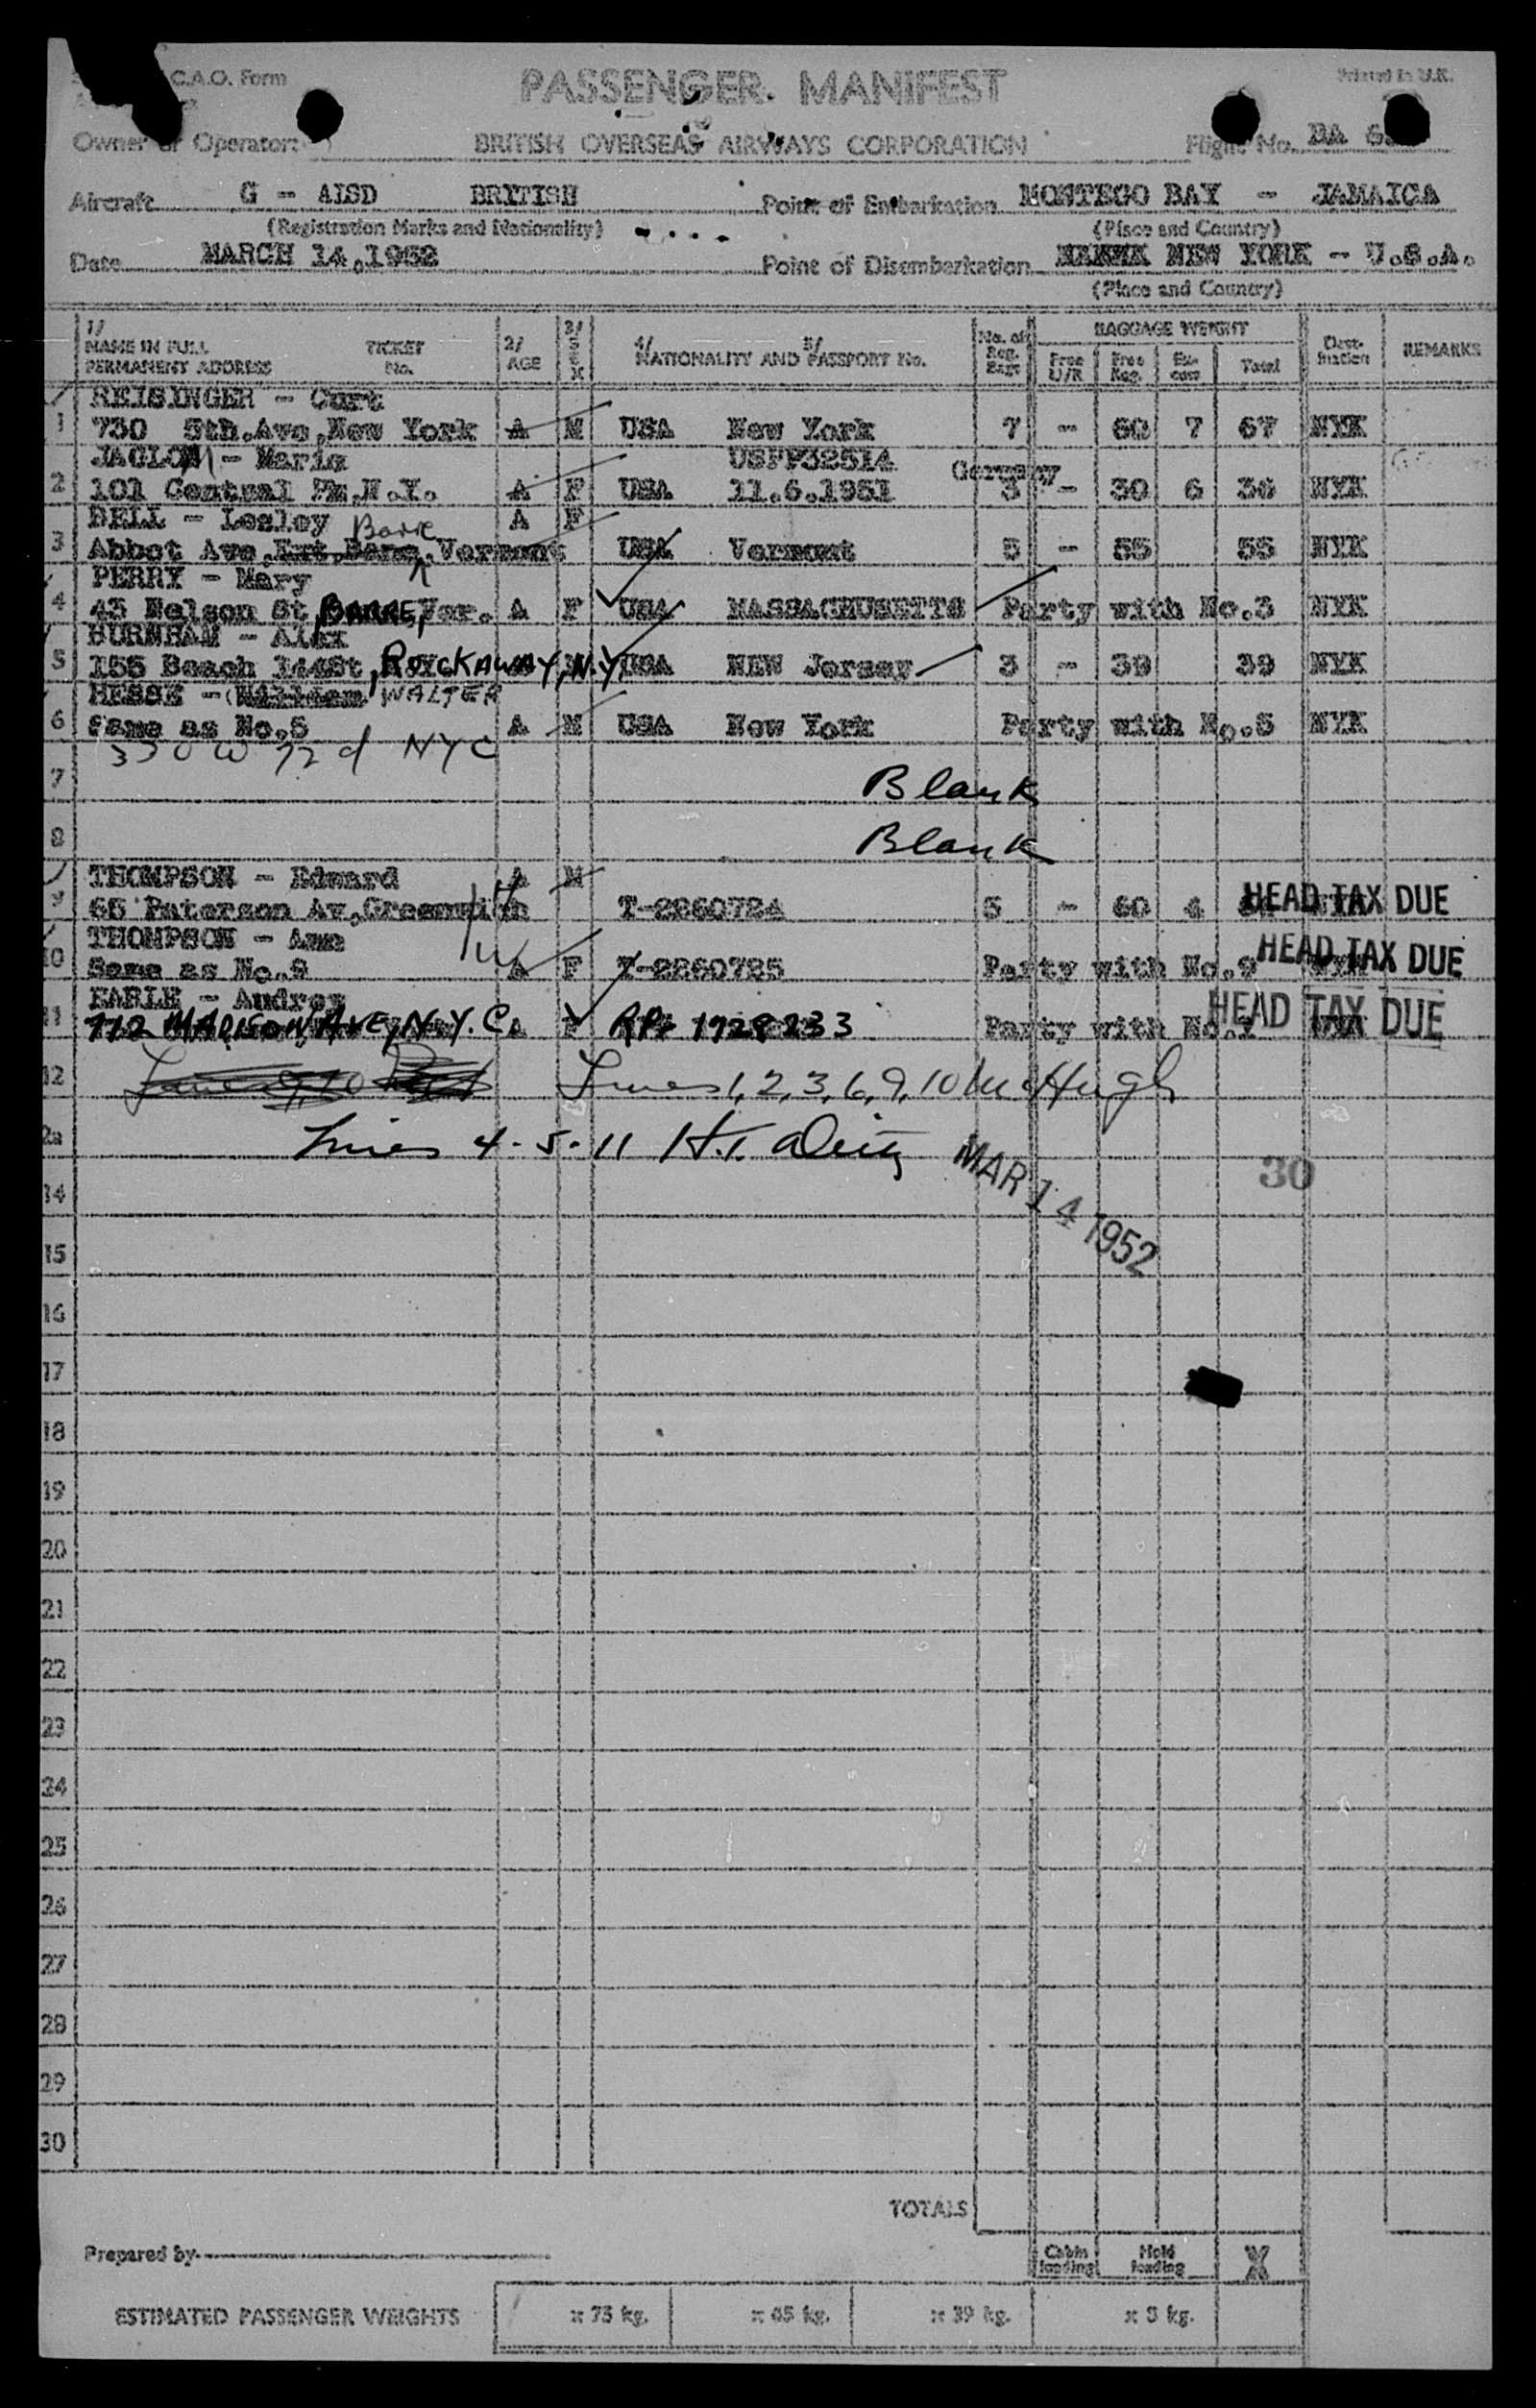 C.A.O. Form
PASSENGER MANIFEST
Printed in U.K.
Owner or Operator: BRITISH OVERSEAS AIRWAYS CORPORATION Flight No. BA
Aircraft G - AISD BRITISH Point of Embarkation MONTEGO BAY - JAMAICA
(Registration Marks and Nationality) (Place and Country)
Date MARCH 14,1952 Point of Disembarkation NEW YORK - U.S.A.
(Place and Country)
1/ NAME IN FULL PERMANENT ADDRESS TICKET No. 2/ AGE 3/ SEX 4/ NATIONALITY AND 5/ PASSPORT No. No. of Reg. Bags BAGGAGE WEIGHT Free U/R Free Reg. Ex-cess Total Dest-ination REMARKS
REISINGER - Curt
1 730 5th.Ave,New York A M USA New York 7 - 60 7 67 NYK
JAGLOM - Maria USPP32514 Germany
2 101 Central Pk,N.Y. A F USA 11.6.1951 3 - 30 6 36 NYK
BELL - Lesley Barre A F
3 Abbot Ave, Vermont USA Vermont 5 - 55 55 NYK
PERRY - Mary
4 43 Nelson St, BARRE, Ver. A F USA MASSACHUSETTS Party with No.3 NYK
BURNHAM - Alex
5 155 Beach 144St, ROCKAWAY, N.Y. USA NEW Jersey 3 - 39 39 NYK
HESSE - William WALTER
6 Same as No.5 A M USA New York Party with No.5 NYK
330 W 72d NYC
7 Blank
8 Blank
THOMPSON - Edward A M
9 65 Paterson Av,Greenwich T-2260724 5 - 60 4 HEAD TAX DUE
THOMPSON - Ann
10 Same as No.9 A F T-2260725 Party with No.9 HEAD TAX DUE
EARLE - Audrey
11 772 MADISON AVE, N.Y.C. A F RPt 1728233 Party with No.1 HEAD TAX DUE
12 Lines 1,2,3,6,9,10 McHugh
2a Lines 4-5-11 H.T.
MAR 14 1952
30
14
15
16
17
18
19
20
21
22
23
24
25
26
27
28
29
30
TOTALS
Prepared by Cabin loading Hold loading X
ESTIMATED PASSENGER WEIGHTS x 75 kg. x 65 kg. x 39 kg. x 8 kg.